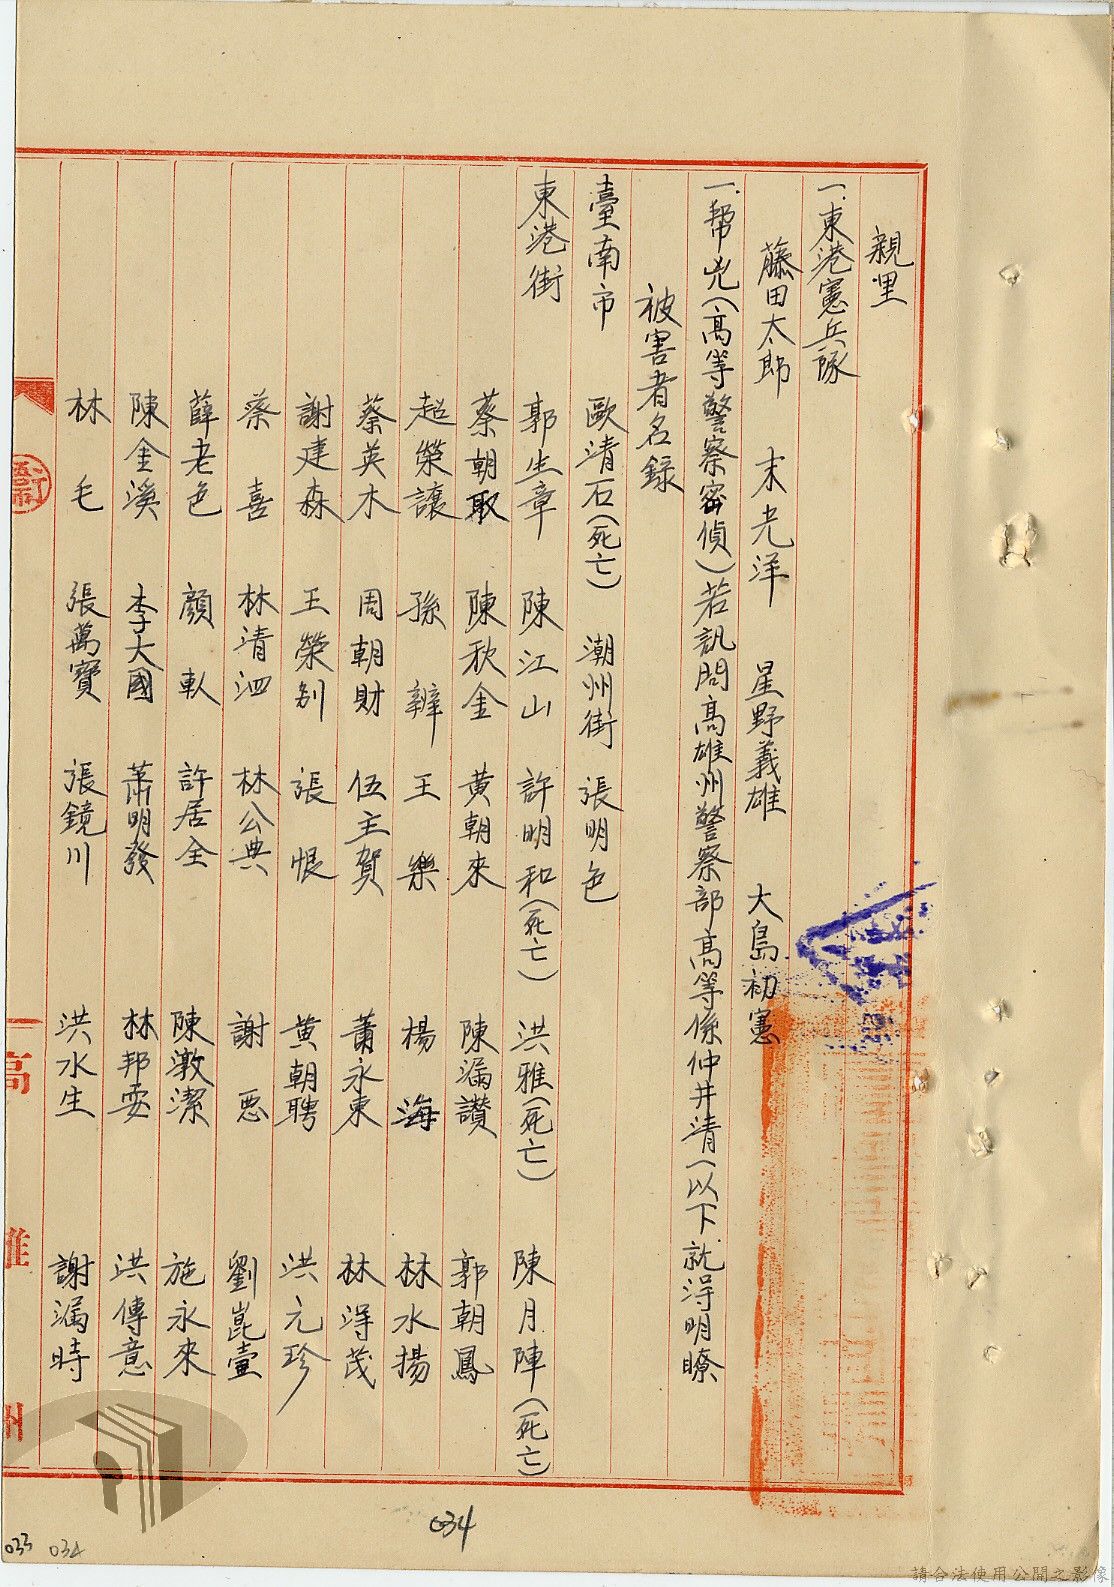 親里
一.東港憲兵隊
藤田太郎　末光洋　星野義雄　大島初憲
一.幇兇(高等警察密偵)若訊問高雄州警察部高等係仲井清(以下就淂明瞭
被害者名錄
臺南市　歐清石(死亡)　潮州街　張明色
東港街　郭生章　陳江山　許明和(死亡)　洪雅(死亡)　陳月陣(死亡)
蔡朝取　陳秋金　黃朝來　陳漏讚　郭朝鳳
趙榮讓　孫辦　王樂　楊海　林水揚
蔡英木　周朝財　伍主賀　蕭永東　林淂茂
謝建森　王榮別　張恨　黃朝聘　洪元珍
蔡喜　林清泗　林公典　謝悪　劉崑壹
薛老色　顏軟　許居全　陳激潔　施永來
陳金溪　李大國　蕭明發　林邦耍　洪傳意
林毛　張萬寶　張鏡川　洪水生　謝漏時
高雄州
034
033 034
請合法使用公開之影像